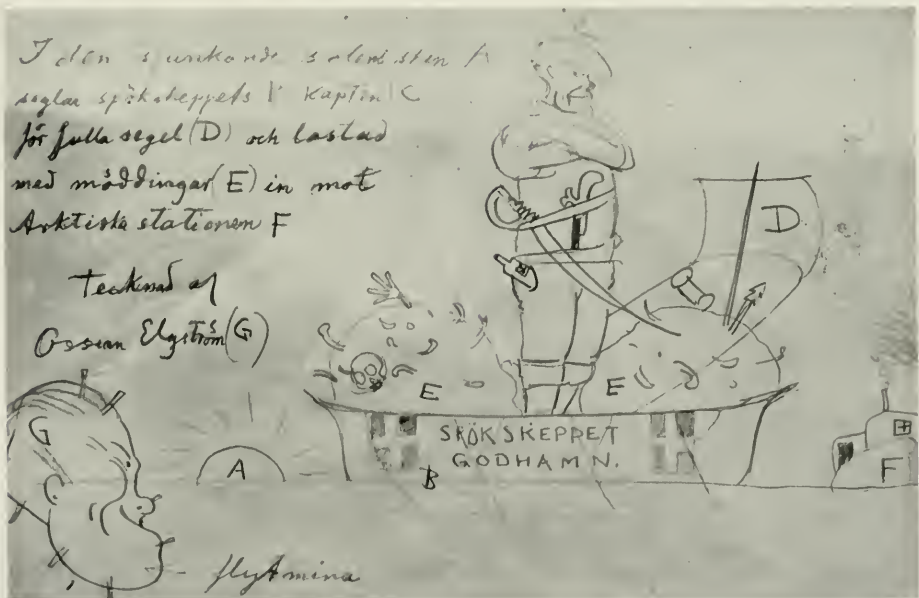 I den sjunkande solens sten A
seglar spökskeppets B Kaptin C
för fulla segel (D) och lastad
med möddingar (E) in mot
Arktiska stationen F
Tecknad af
Ossian Elgström (G)
D
E
E
G
A
SPÖKSKEPPET
GODHAMN.
B
F
flyt mina